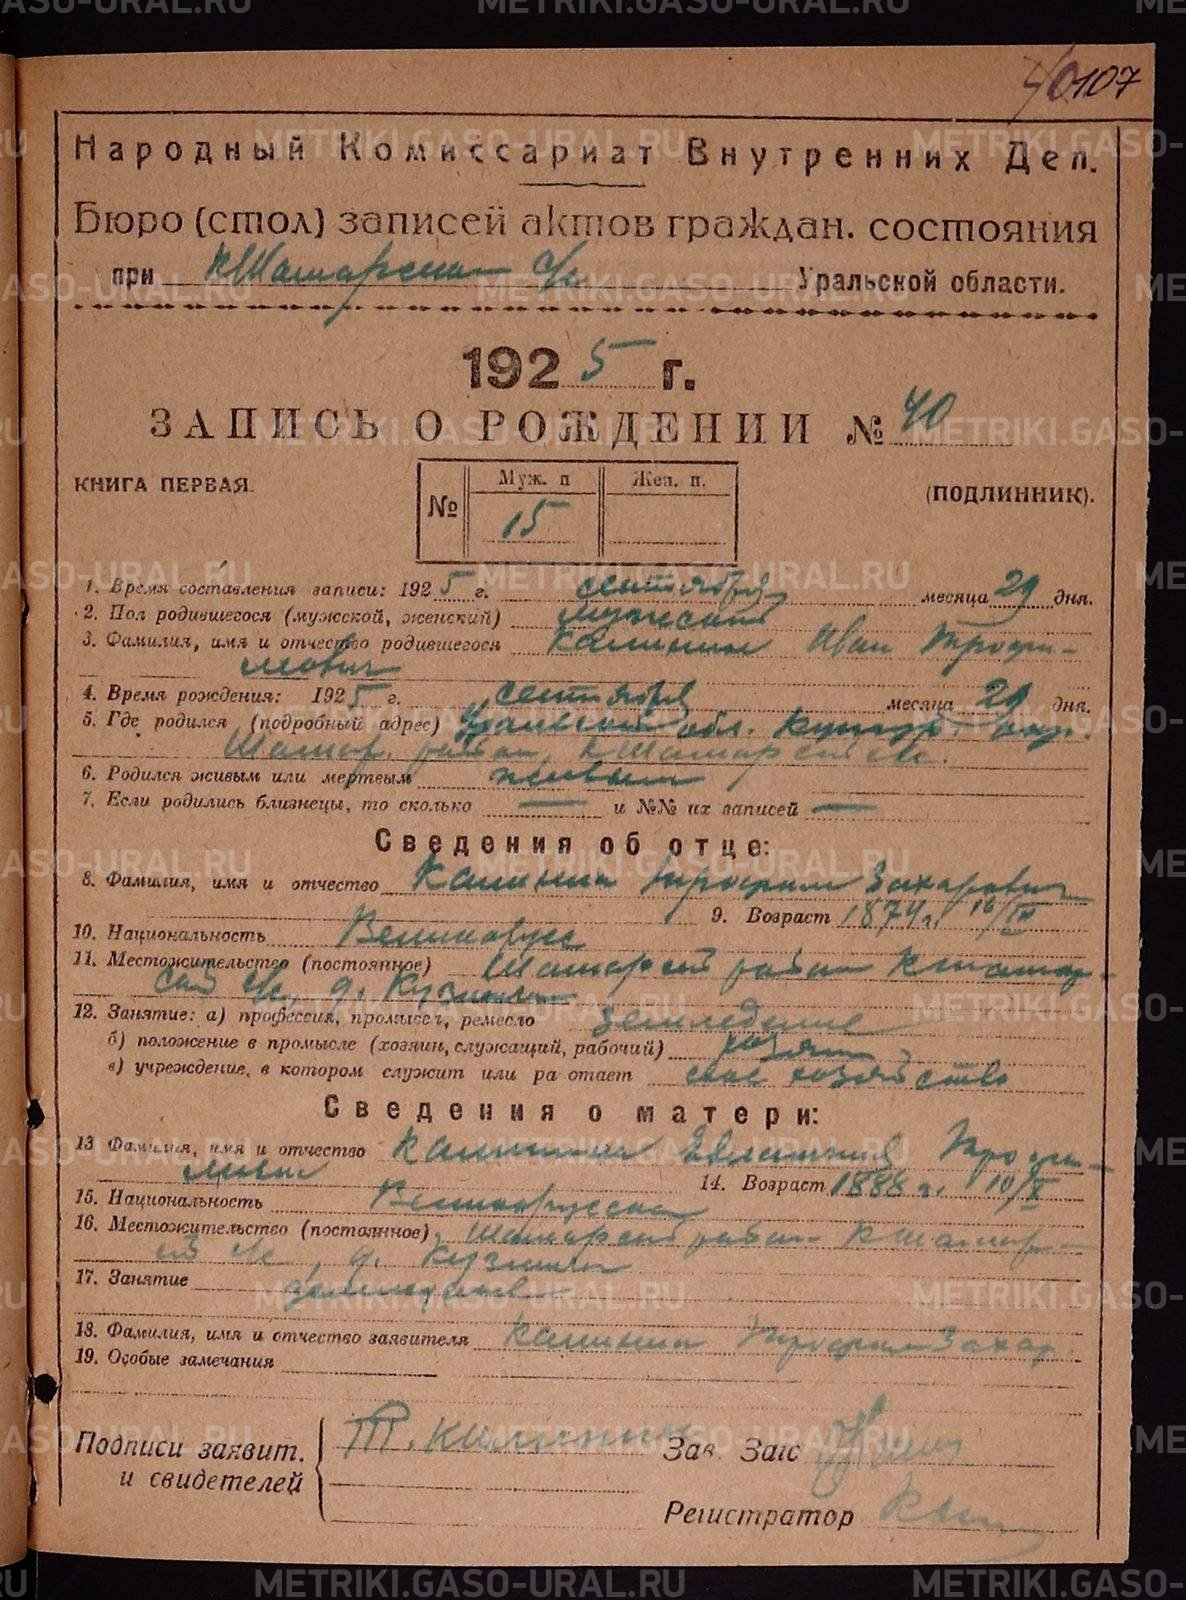 40 107
Народный Комиссариат Внутренних Дел.
Бюро (стол) записей актов граждан. состояния
при КШамарском с/с Уральской области.
1925 г.
ЗАПИСЬ О РОЖДЕНИИ № 40
КНИГА ПЕРВАЯ. (ПОДЛИННИК).
№ Муж. п Жен. п.
15
1. Время составления записи: 1925 г. сентября месяца 29 дня.
2. Пол родившегося (мужской, женский) мужской
3. Фамилия, имя и отчество родившегося Калинин Иван Трофи-
мович
4. Время рождения: 1925 г. сентября месяца 29 дня.
5. Где родился (подробный адрес) Уральской обл. Кунгур. окр.
Шамар. район, КШамарский с/с.
6. Родился живым или мертвым живым
7. Если родились близнецы, то сколько — и №№ их записей —
Сведения об отце:
8. Фамилия, имя и отчество Калинин Трофим Захарович
9. Возраст 1874 г. 16/III
10. Национальность Великорусс
11. Местожительство (постоянное) Шамарский район КШамар-
ский с/с, д. Кузино
12. Занятие: а) профессия, промысел, ремесло земледелие
б) положение в промысле (хозяин, служащий, рабочий) хозяин
в) учреждение, в котором служит или ра отает свое хозяйство
Сведения о матери:
13 Фамилия, имя и отчество Калинина Трофи-
мовна
14. Возраст 1888 г. 10/X
15. Национальность Великорусская
16. Местожительство (постоянное) Шамарский район КШамар-
ский с/с, д. Кузино
17. Занятие земледелие
18. Фамилия, имя и отчество заявителя Калинин Трофим Захар.
19. Особые замечания
Подписи заявит. Т. Калинин Зав. Загс
и свидетелей
Регистратор